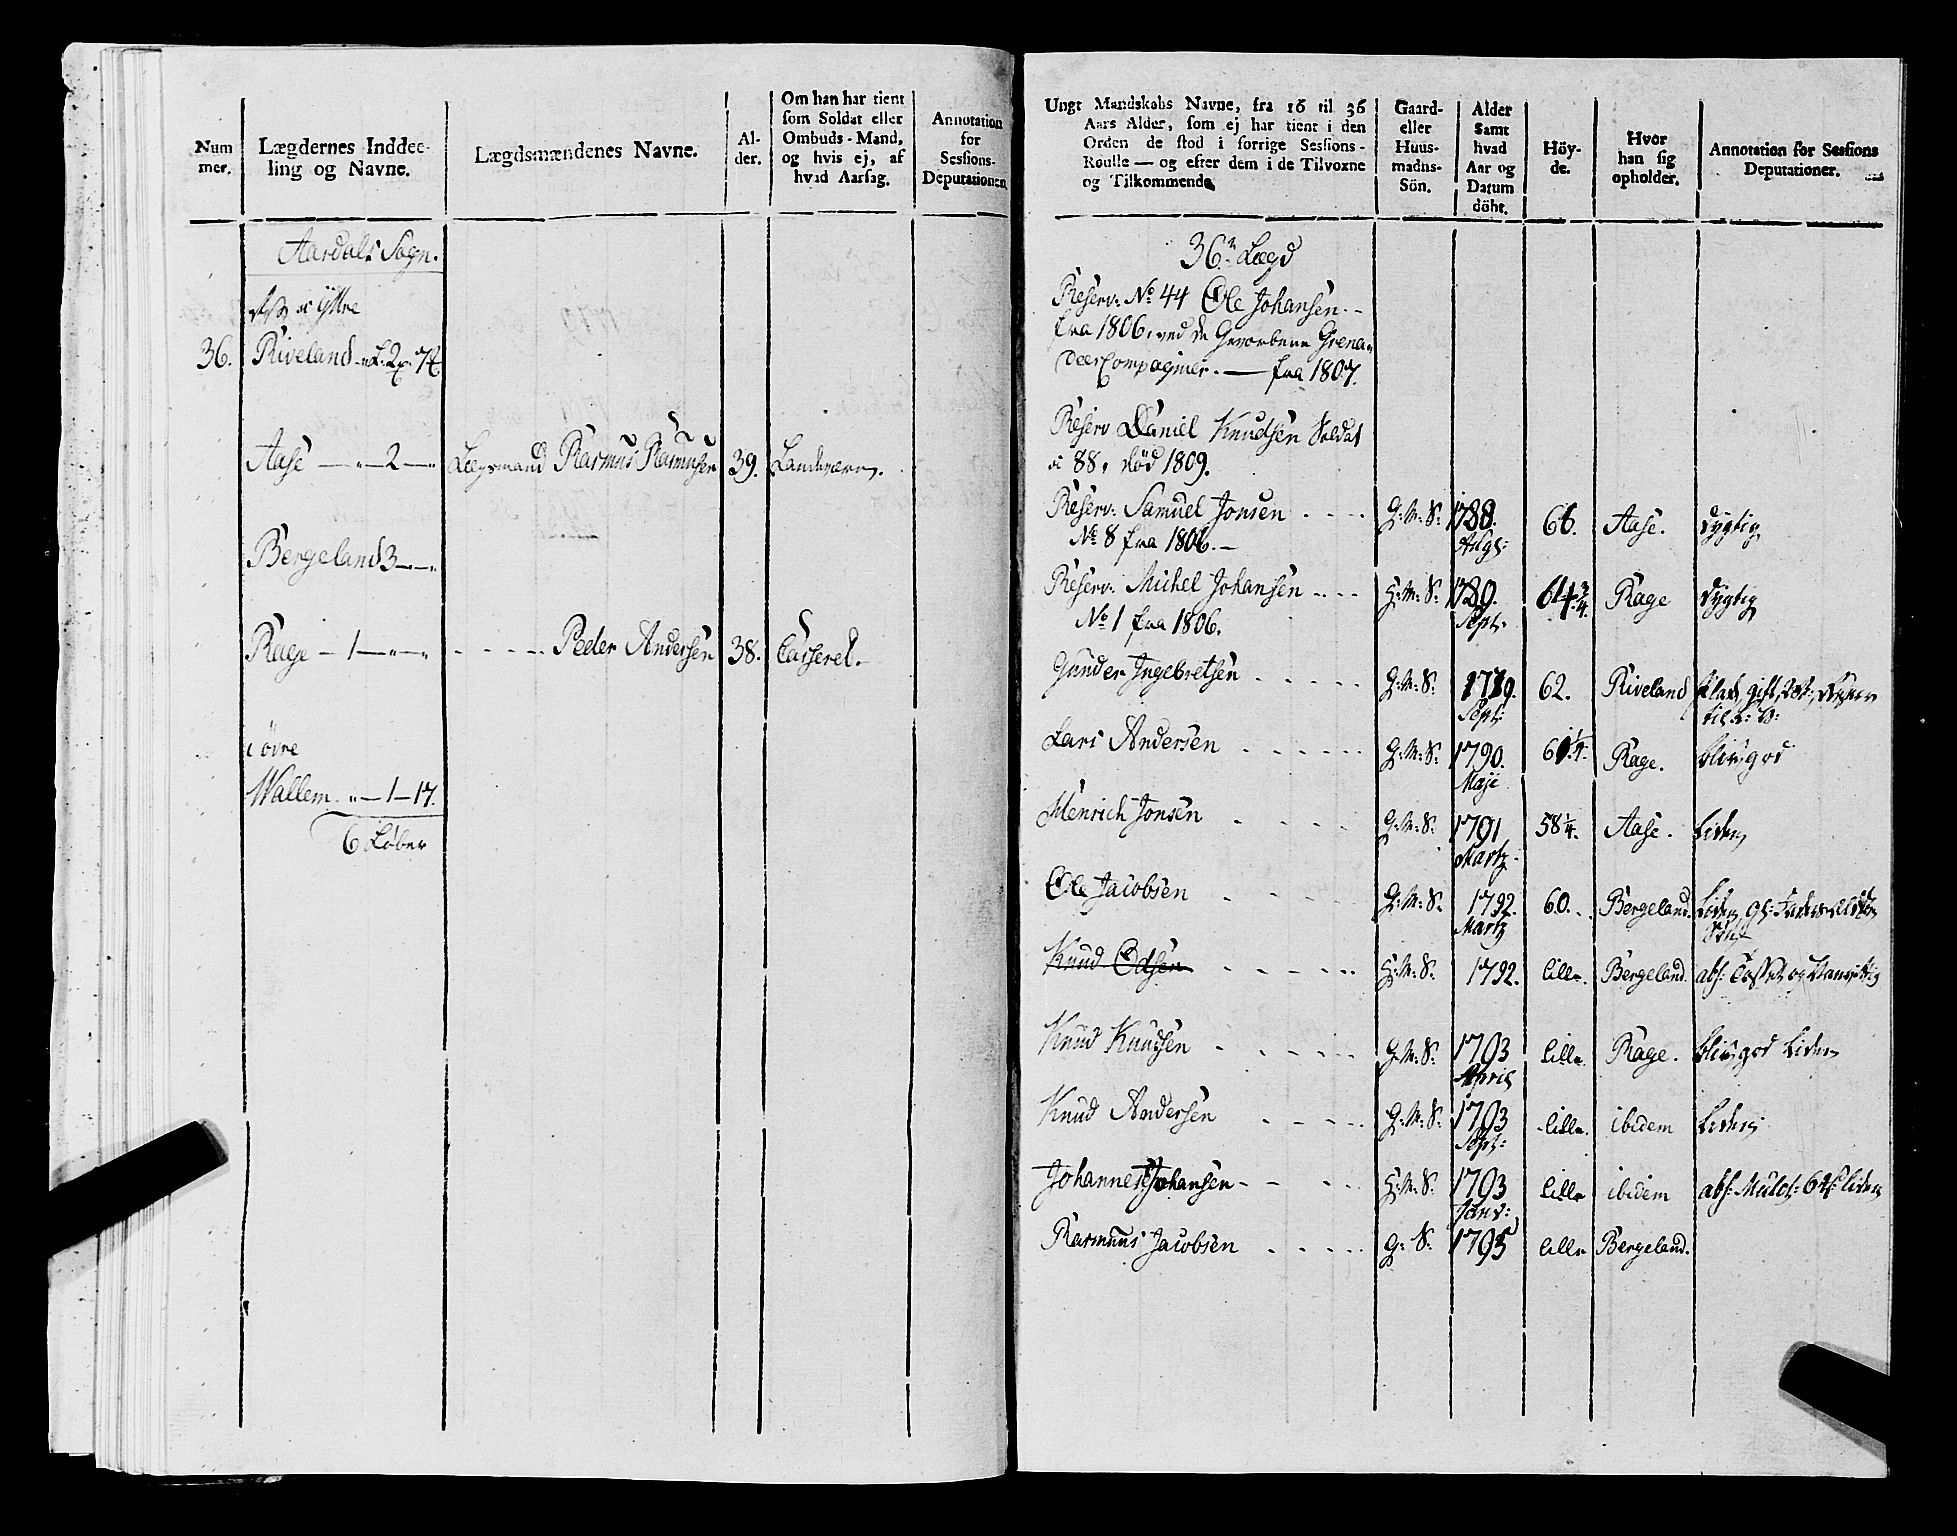 Num
mer.
Lægdernes Inddee-
ling og Navne.
Lægdsmændenes Navne.
Al-
der.
Om han har tient
som Soldat eller
Ombuds-Mand,
og hvis ej, af
hvad Aarsag.
Annotation
for
Sessions-
Deputationen
Aardals Sogn.
i Yttre
36. Riveland
Aase — " — 2 — " Lægsmand Rasmus Rasmusen 39. Landeværn.
Bergeland 3 — "
Rage — 1 — " — " - - - - - Peder Andersen 38. Casseret.
i øvre
Wallem. " — 1 — 17.
6 Løber
Ungt Mandskabs Navne, fra 16 til 36
Aars Alder, som ej har tient i den
Orden de stod i forrige Sessions-
Roulle — og efter dem i de Tilvoxne
og Tilkommende.
Gaard-
eller
Huus-
madns-
Sön.
Alder
samt
hvad
Aar og
Datum
döbt.
Höy-
de.
Hvor
han sig
opholder.
Annotation for Sessions
Deputationer.
36te Lægd
Reserv: No 44 Ole Johansen. -
fra 1806, ved de Gevorbene Grena-
deer Compagnier. — fra 1807.
Reserv Daniel Knudsen Soldat
i 88, død 1809.
Reserv: Samuel Jonsen . - - - G: M: S: 1788. 66. Aase. dygtig
No 8 fra 1806. - Aug:
Reserv: Michel Johansen - - - - H: M: S: 1789. 64 3/4. Rage dygtig
No 1 fra 1806. Sept:
Gunder Ingebretsen - - - - - G: M: S: 1779. 62. Riveland
Sept:
Lars Andersen - - - - - - G: M: S: 1790. 61 1/4. Rage. bliv: god
Maje
Henrich Jonsen - - - - G: M: S: 1791 58 1/4. Aase. liden
Martz
Ole Jacobsen - - - - G: M: S. 1792. 60. Bergeland. liden,
Martz
Knud Edsen - - - - - - H: M: S. 1792. lille. Bergeland. abs:
Knud Knudsen - - - - - G: M: S: 1793 lille Rage. bliv: god liden
April
Knud Andersen - - - - G: M: S. 1793 lille. ibidem liden
Sept:
Johannes Johansen - - - - H: M: S. 1793 lille ibidem abs:
Janv:
Rasmus Jacobsen - - - - - G: S. 1795 lille Bergeland.